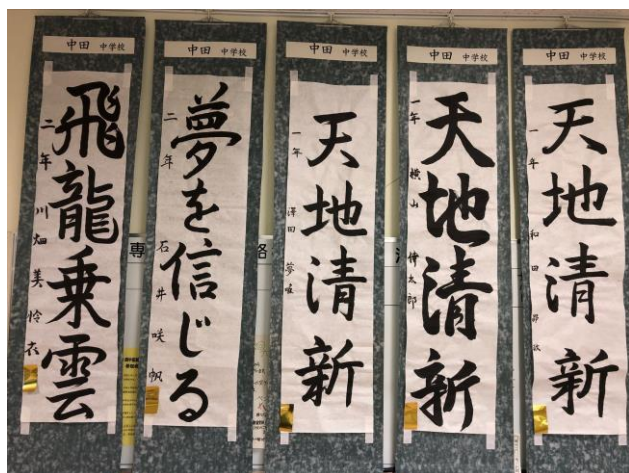 中田 中学校
飛龍乗雲
二年 川畑美怜衣
中田 中学校
夢を信じる
二年 石井咲帆
中田 中学校
天地清新
一年 澤田夢唯
中田 中学校
天地清新
一年 横山倖太郎
中田 中学校
天地清新
一年 和田
専